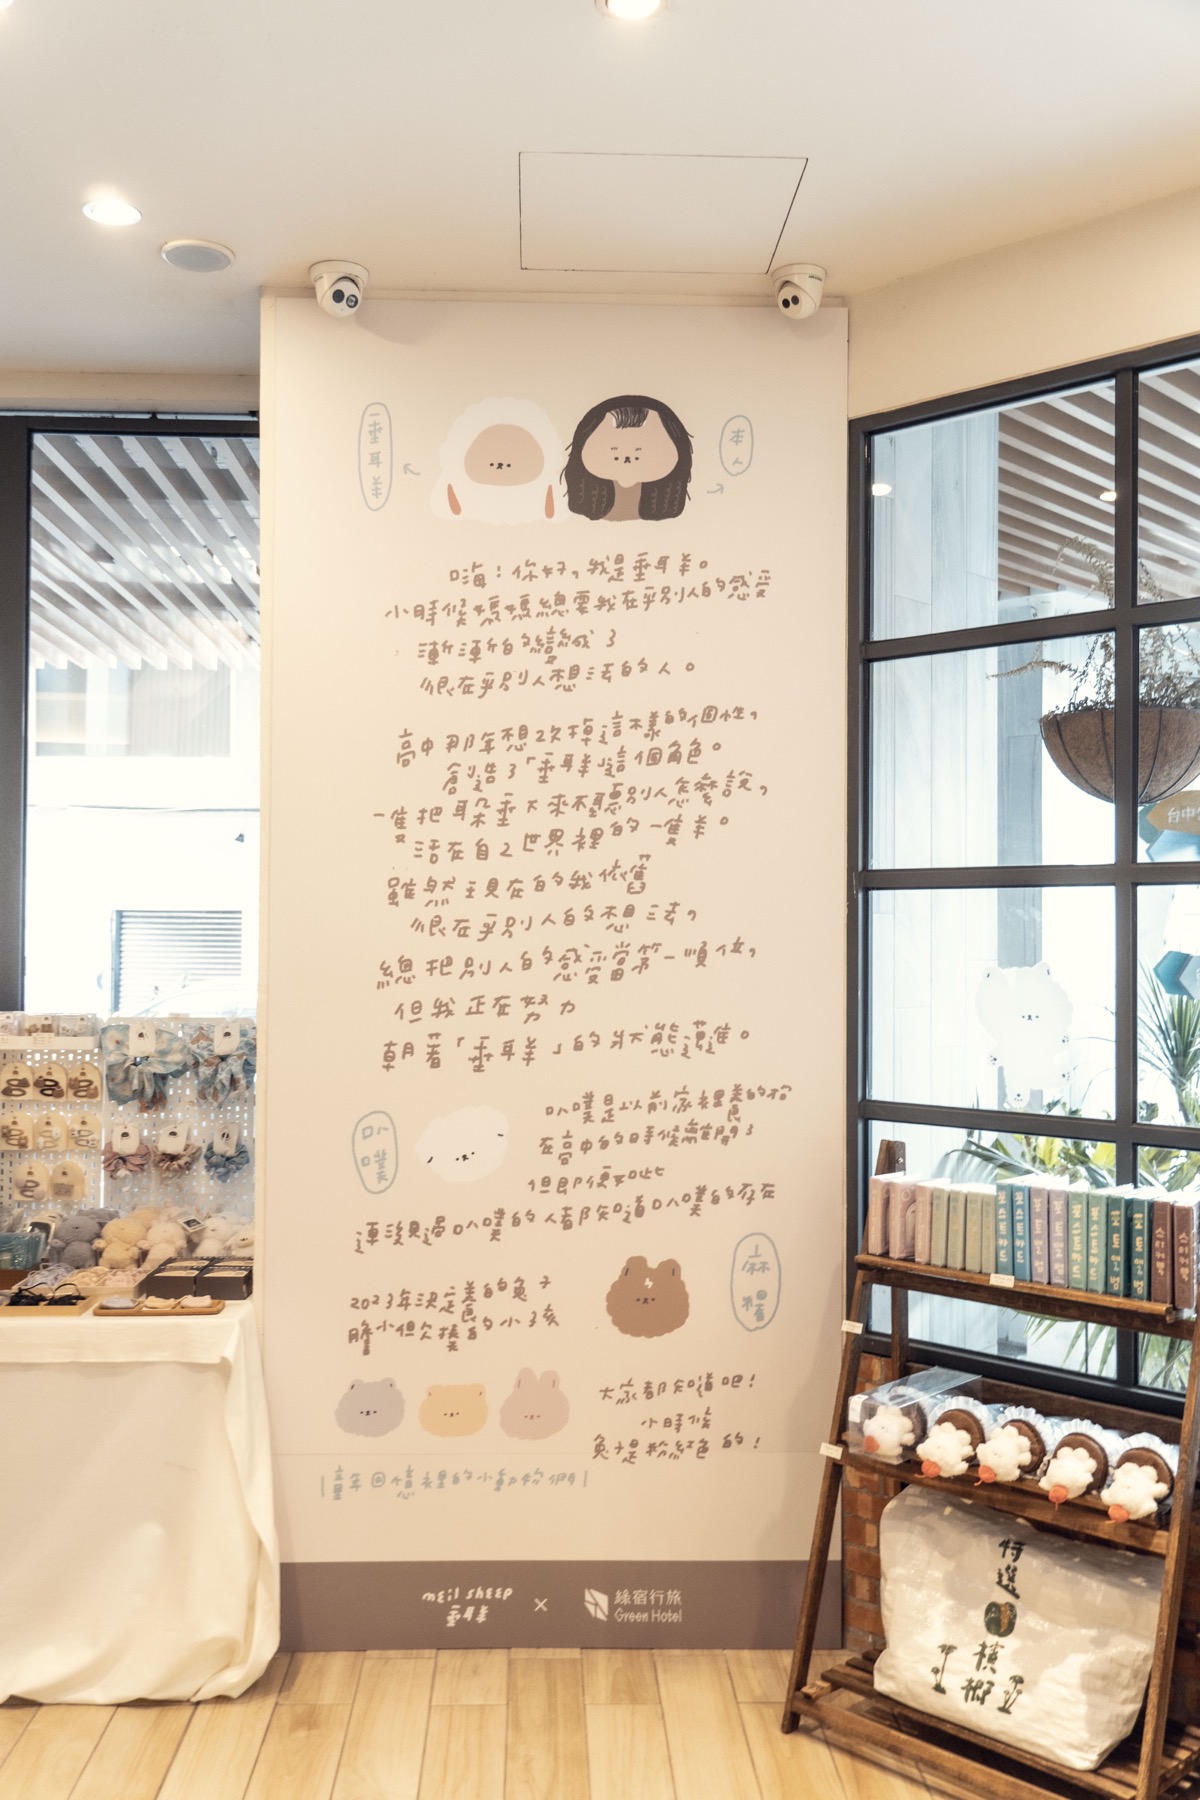 垂耳羊
本人
嗨！你好，我是垂耳羊。
小時候媽媽總要我在乎別人的感受
漸漸的變成了
很在乎別人想法的人。
高中那年想改掉這樣的個性，
創造了「垂耳羊」這個角色。
一隻把耳朵垂下來不聽別人怎麼說，
活在自己世界裡的一隻羊。
雖然現在的我依舊
很在乎別人的想法，
總把別人的感受當第一順位，
但我正在努力
朝著「垂耳羊」的狀態邁進。
叭噗
叭噗是以前家裡養的狗
在高中的時候離開了
但即便如此
連沒見過叭噗的人都知道叭噗的存在
麻糬
2023年決定養的兔子
膽小但欠揍的小孩
大家都知道吧！
小時候
兔子是粉紅色的！
|童年回憶裡的小動物們|
meil sheep
垂耳羊
×
綠宿行旅
Green Hotel
포스트카드
포스트카드
포토앨범
포스트카드
포스트카드
포토앨범
포토앨범
스티커북
스티커북
台中
特選
檳榔